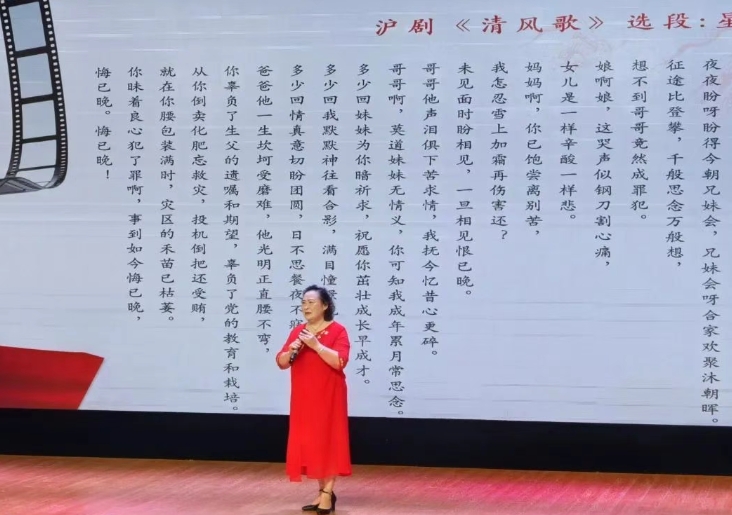 沪剧《清风歌》选段:
夜夜盼呀盼得今朝兄妹会，兄妹会呀合家欢聚沐朝晖。
征途比登攀，千般思念万般想，
想不到哥哥竟然成罪犯。
娘啊娘，这哭声似钢刀割心痛，
女儿是一样辛酸一样悲。
妈妈啊，你已饱尝离别苦，
我怎忍雪上加霜再伤害还？
未见面时盼相见，一旦相见恨已晚。
哥哥他声泪俱下苦求情，我抚今忆昔心更碎。
哥哥啊，莫道妹妹无情义，你可知我成年累月常思念。
多少回妹妹为你暗祈求，祝愿你茁壮成长早成才。
多少回我默默神往看合影，满目憧
多少回情真意切盼团圆，日不思餐夜不
爸爸他一生坎坷受磨难，他光明正直腰不弯，
你辜负了生父的遗嘱和期望，辜负了党的教育和栽培。
从你倒卖化肥忘救灾，投机倒把还受贿，
就在你腰包装满时，灾区的禾苗已枯萎。
你昧着良心犯了罪啊，事到如今悔已晚，
悔已晚。悔已晚！